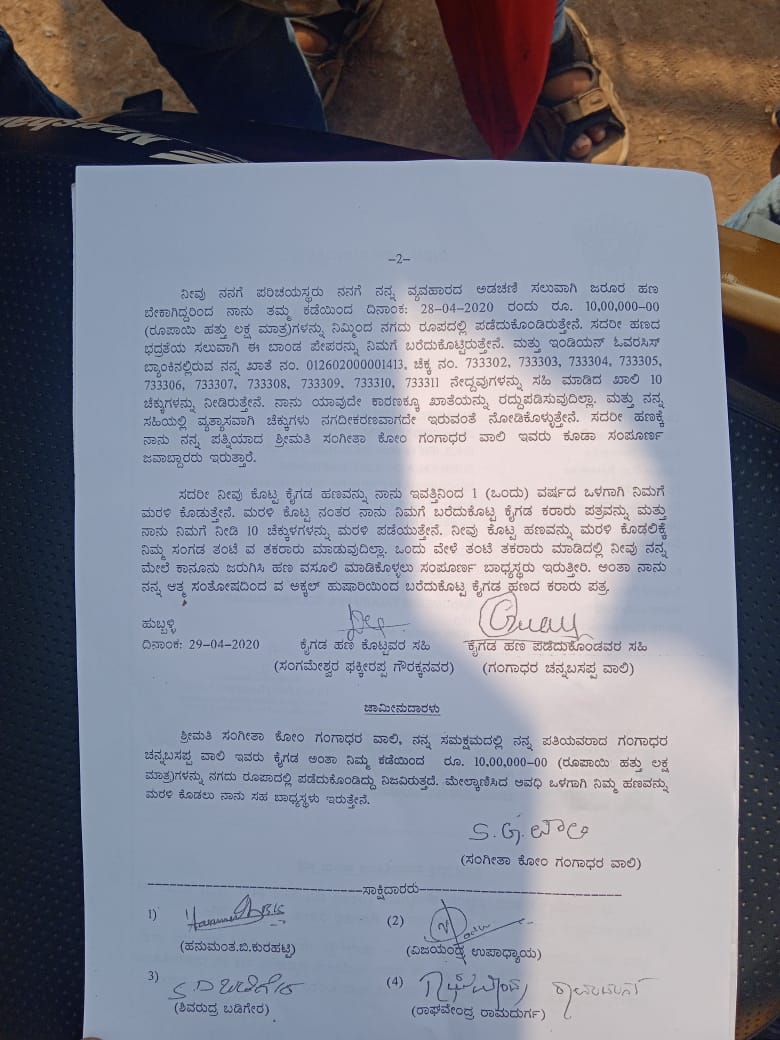 –2–
ನೀವು ನನಗೆ ಪರಿಚಯಸ್ಥರು ನನಗೆ ನನ್ನ ವ್ಯವಹಾರದ ಅಡಚಣಿ ಸಲುವಾಗಿ ಜರೂರ ಹಣ
ಬೇಕಾಗಿದ್ದರಿಂದ ನಾನು ತಮ್ಮ ಕಡೆಯಿಂದ ದಿನಾಂಕ: 28-04-2020 ರಂದು ರೂ. 10,00,000-00
(ರೂಪಾಯಿ ಹತ್ತು ಲಕ್ಷ ಮಾತ್ರ)ಗಳನ್ನು ನಿಮ್ಮಿಂದ ನಗದು ರೂಪದಲ್ಲಿ ಪಡೆದುಕೊಂಡಿರುತ್ತೇನೆ. ಸದರೀ ಹಣದ
ಭದ್ರತೆಯ ಸಲುವಾಗಿ ಈ ಬಾಂಡ ಪೇಪರನ್ನು ನಿಮಗೆ ಬರೆದುಕೊಟ್ಟಿರುತ್ತೇನೆ. ಮತ್ತು ಇಂಡಿಯನ್ ಓವರಸಿಸ್
ಬ್ಯಾಂಕಿನಲ್ಲಿರುವ ನನ್ನ ಖಾತೆ ನಂ. 012602000001413, ಚೆಕ್ಕ ನಂ. 733302, 733303, 733304, 733305,
733306, 733307, 733308, 733309, 733310, 733311 ನೇದ್ದವುಗಳನ್ನು ಸಹಿ ಮಾಡಿದ ಖಾಲಿ 10
ಚೆಕ್ಕುಗಳನ್ನು ನೀಡಿರುತ್ತೇನೆ. ನಾನು ಯಾವುದೇ ಕಾರಣಕ್ಕೂ ಖಾತೆಯನ್ನು ರದ್ದುಪಡಿಸುವುದಿಲ್ಲಾ. ಮತ್ತು ನನ್ನ
ಸಹಿಯಲ್ಲಿ ವ್ಯತ್ಯಾಸವಾಗಿ ಚೆಕ್ಕುಗಳು ನಗದೀಕರಣವಾಗದೇ ಇರುವಂತೆ ನೋಡಿಕೊಳ್ಳುತ್ತೇನೆ. ಸದರೀ ಹಣಕ್ಕೆ
ನಾನು ನನ್ನ ಪತ್ನಿಯಾದ ಶ್ರೀಮತಿ ಸಂಗೀತಾ ಕೋಂ ಗಂಗಾಧರ ವಾಲಿ ಇವರು ಕೂಡಾ ಸಂಪೂರ್ಣ
ಜವಾಬ್ದಾರರು ಇರುತ್ತಾರೆ.
ಸದರೀ ನೀವು ಕೊಟ್ಟ ಕೈಗಡ ಹಣವನ್ನು ನಾನು ಇವತ್ತಿನಿಂದ 1 (ಒಂದು) ವರ್ಷದ ಒಳಗಾಗಿ ನಿಮಗೆ
ಮರಳಿ ಕೊಡುತ್ತೇನೆ. ಮರಳಿ ಕೊಟ್ಟ ನಂತರ ನಾನು ನಿಮಗೆ ಬರೆದುಕೊಟ್ಟ ಕೈಗಡ ಕರಾರು ಪತ್ರವನ್ನು ಮತ್ತು
ನಾನು ನಿಮಗೆ ನೀಡಿ 10 ಚೆಕ್ಕುಳಗಳನ್ನು ಮರಳಿ ಪಡೆಯುತ್ತೇನೆ. ನೀವು ಕೊಟ್ಟ ಹಣವನ್ನು ಮರಳಿ ಕೊಡಲಿಕ್ಕೆ
ನಿಮ್ಮ ಸಂಗಡ ತಂಟೆ ವ ತಕರಾರು ಮಾಡುವುದಿಲ್ಲಾ. ಒಂದು ವೇಳೆ ತಂಟೆ ತಕರಾರು ಮಾಡಿದಲ್ಲಿ ನೀವು ನನ್ನ
ಮೇಲೆ ಕಾನೂನು ಜರುಗಿಸಿ ಹಣ ವಸೂಲಿ ಮಾಡಿಕೊಳ್ಳಲು ಸಂಪೂರ್ಣ ಬಾಧ್ಯಸ್ಥರು ಇರುತ್ತೀರಿ. ಅಂತಾ ನಾನು
ನನ್ನ ಆತ್ಮ ಸಂತೋಷದಿಂದ ವ ಅಕ್ಕಲ್ ಹುಷಾರಿಯಿಂದ ಬರೆದುಕೊಟ್ಟ ಕೈಗಡ ಹಣದ ಕರಾರು ಪತ್ರ.
ಹುಬ್ಬಳ್ಳಿ
ದಿನಾಂಕ: 29-04-2020 ಕೈಗಡ ಹಣ ಕೊಟ್ಟವರ ಸಹಿ ಕೈಗಡ ಹಣ ಪಡೆದುಕೊಂಡವರ ಸಹಿ
(ಸಂಗಮೇಶ್ವರ ಫಕ್ಕೀರಪ್ಪ ಗೌರಕ್ಕನವರ) (ಗಂಗಾಧರ ಚನ್ನಬಸಪ್ಪ ವಾಲಿ)
ಜಾಮೀನುದಾರಳು
ಶ್ರೀಮತಿ ಸಂಗೀತಾ ಕೋಂ ಗಂಗಾಧರ ವಾಲಿ, ನನ್ನ ಸಮಕ್ಷಮದಲ್ಲಿ ನನ್ನ ಪತಿಯವರಾದ ಗಂಗಾಧರ
ಚನ್ನಬಸಪ್ಪ ವಾಲಿ ಇವರು ಕೈಗಡ ಅಂತಾ ನಿಮ್ಮ ಕಡೆಯಿಂದ ರೂ. 10,00,000-00 (ರೂಪಾಯಿ ಹತ್ತು ಲಕ್ಷ
ಮಾತ್ರ)ಗಳನ್ನು ನಗದು ರೂಪಾದಲ್ಲಿ ಪಡೆದುಕೊಂಡಿದ್ದು ನಿಜವಿರುತ್ತದೆ. ಮೇಲ್ಕಾಣಿಸಿದ ಅವಧಿ ಒಳಗಾಗಿ ನಿಮ್ಮ ಹಣವನ್ನು
ಮರಳಿ ಕೊಡಲು ನಾನು ಸಹ ಬಾಧ್ಯಸ್ಥಳು ಇರುತ್ತೇನೆ.
S. G. ವಾಲಿ
(ಸಂಗೀತಾ ಕೋಂ ಗಂಗಾಧರ ವಾಲಿ)
ಸಾಕ್ಷಿದಾರರು
1) (2)
(ಹನುಮಂತ.ಬಿ.ಕುರಹಟ್ಟಿ) (ವಿಜಯೇಂದ್ರ ಉಪಾಧ್ಯಾಯ)
3) S. D ಬಡಿಗೇರ (4) ರಾಘವೇಂದ್ರ ರಾಮದುರ್ಗ
(ಶಿವರುದ್ರ ಬಡಿಗೇರ) (ರಾಘವೇಂದ್ರ ರಾಮದುರ್ಗ)